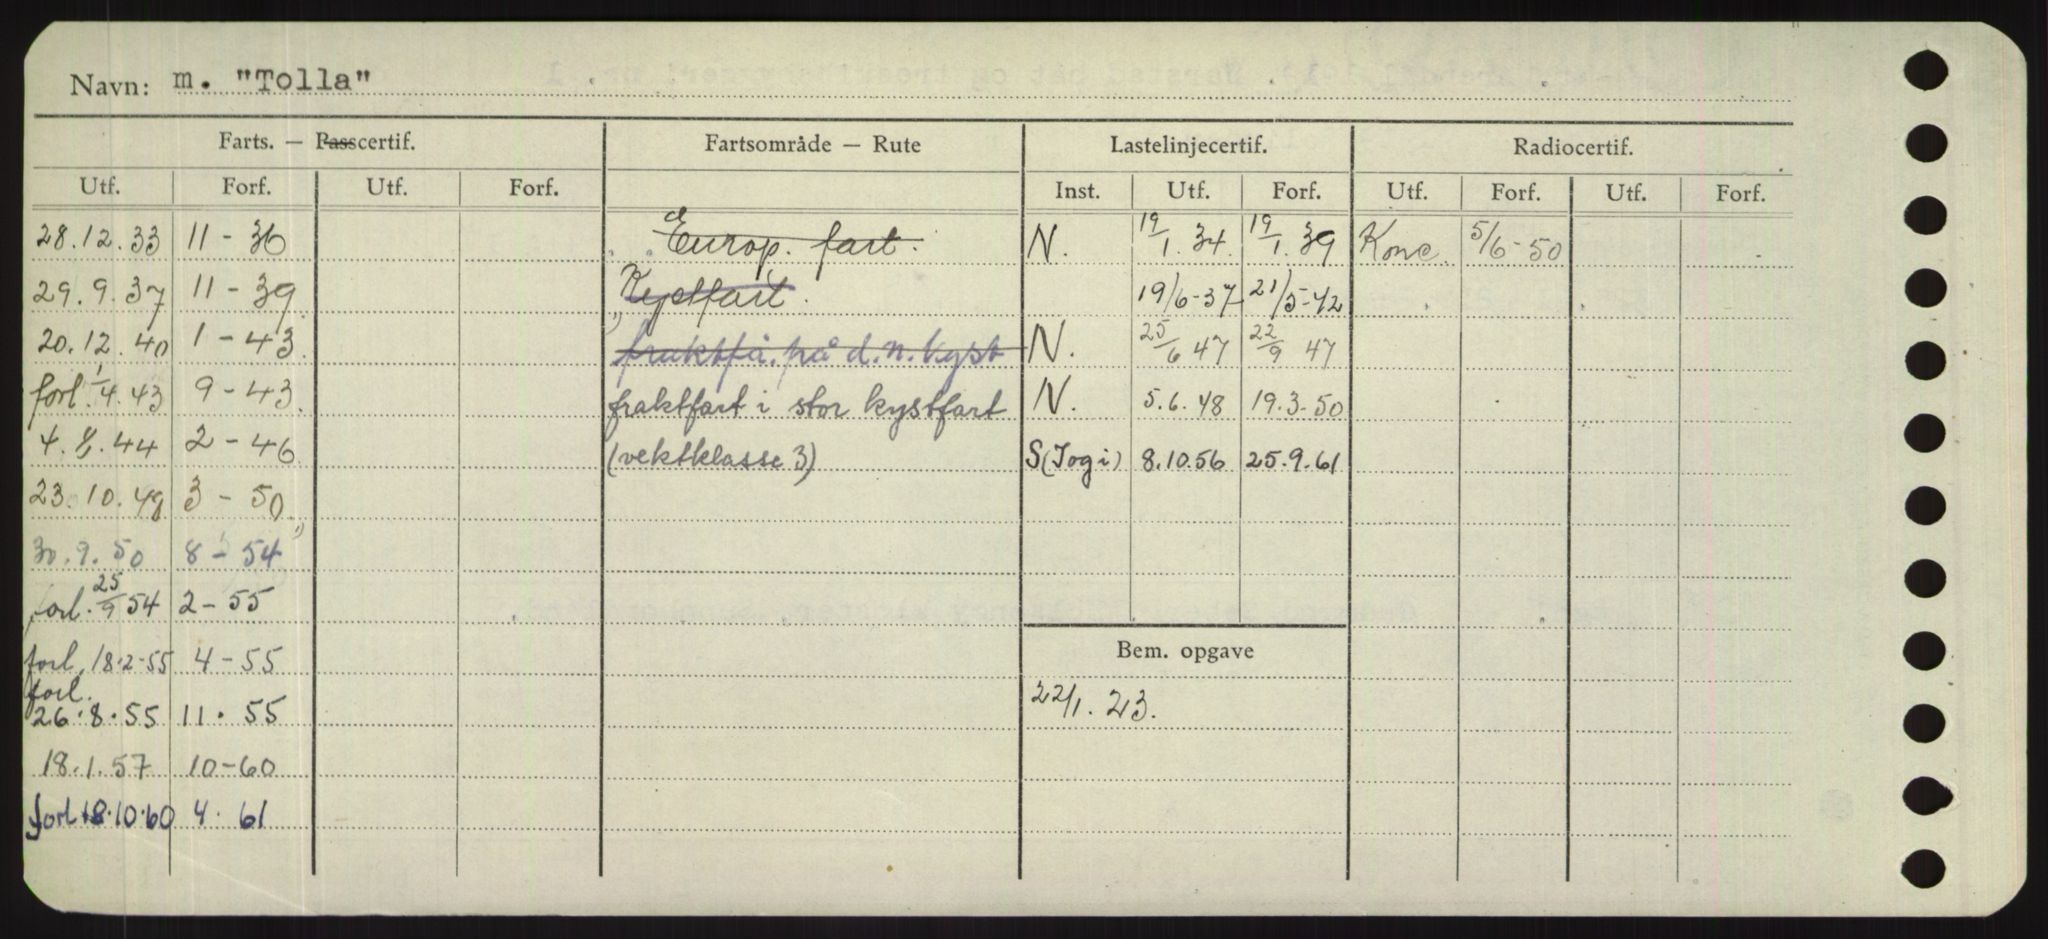 Navn: m. "Tolla"
Farts. — Passcertif. Fartsområde — Rute Lastelinjecertif. Radiocertif.
Utf. Forf. Utf. Forf. Inst. Utf. Forf. Utf. Forf. Utf. Forf.
28.12.33 11-36 Europ. fart. N. 19/1.34. 19/1.39 Konc. 5/6-50
29.9.37 11-39 Kystfart. 19/6-37 21/5-42
20.12.40 1-43. fraktfa. på d.n. kyst N. 25/6 47 22/9 47
forl. 1/4.43 9-43. fraktfart i stor kystfart N. 5.6.48 19.3.50
4.8.44 2-46 (vektklasse 3) S(Jogi) 8.10.56 25.9.61
23.10.48 3-50
30.9.50 8-54
forl. 25/9 54 2-55
forl. 18.2-55 4-55 Bem. opgave
forl.
26.8.55 11.55 22/1.23.
18.1.57 10-60
forl 18.10.60 4.61